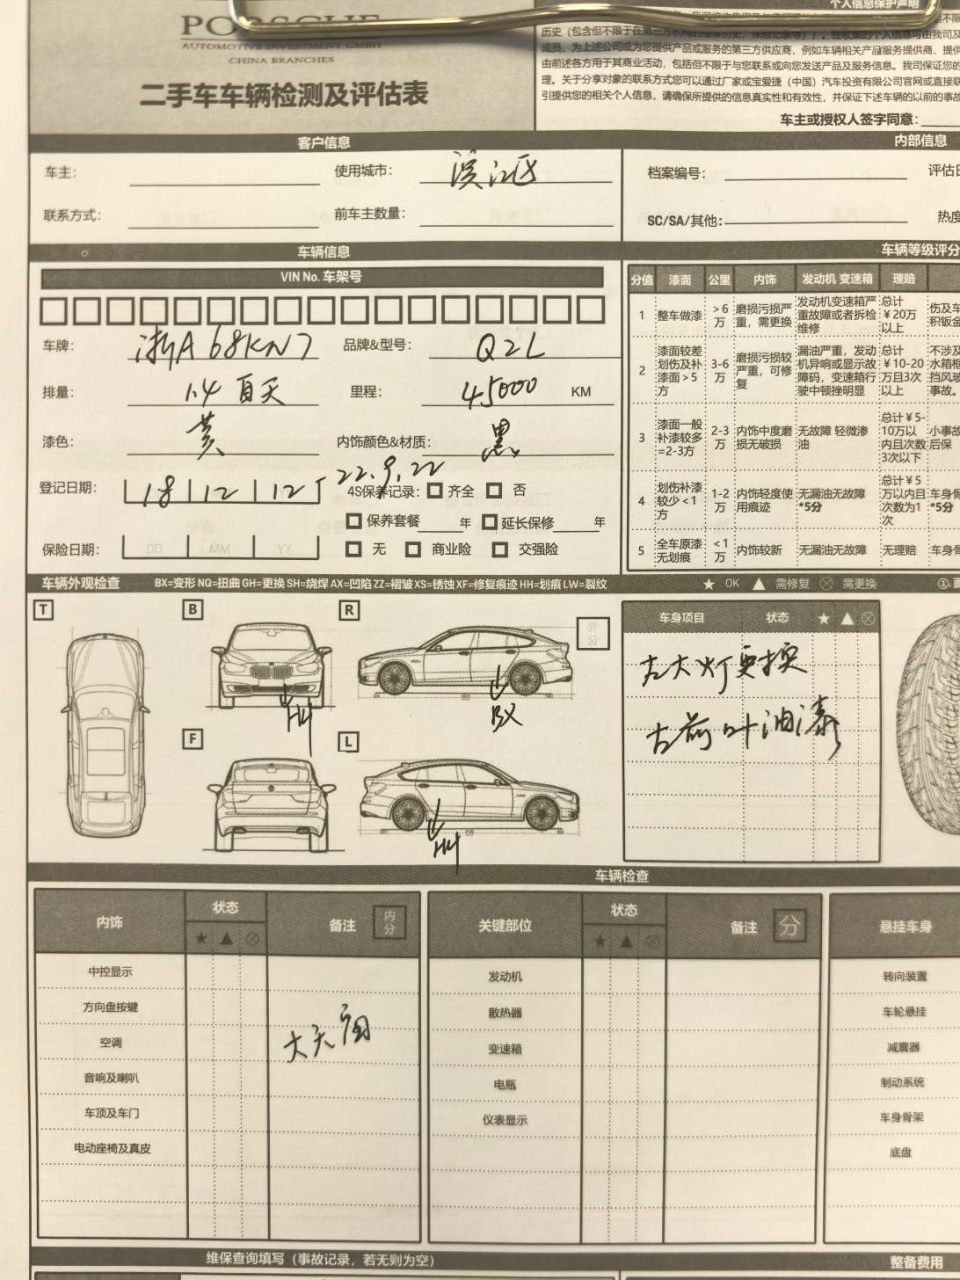 PORSCHE
AUTOMOTIVE INVESTMENT GMBH
CHINA BRANCHES
二手车车辆检测及评估表
个人信息保护声明
成员。为上述公司或为您提供产品或服务的第三方供应商，例如车辆相关产品服务提供商、提供
由前述各方用于其商业活动，包括但不限于与您联系或向您发送产品及服务信息。我司保证您的
理。关于分享对象的联系方式您可以通过厂家或宝爱捷（中国）汽车投资有限公司官网或直接联
引提供您的相关个人信息，请确保所提供的信息真实性和有效性，并保证下述车辆的以前的事故
车主或授权人签字同意：
客户信息
内部信息
车主：
使用城市： 滨江区
档案编号：
评估日
联系方式：
前车主数量：
SC/SA/其他：
热度
车辆信息
车辆等级评分
VIN No. 车架号
车牌： 浙A68KN7
品牌&型号： Q2L
排量： 1.4
里程： 45000 KM
漆色： 黄
内饰颜色&材质： 黑
登记日期： 18 12 12
22.9.22
4S保养记录： 齐全 否
保养套餐 年 延长保修 年
保险日期： DD MM YY
无 商业险 交强险
分值 漆面 公里 内饰 发动机 变速箱 理赔
1 整车做漆 >6万 磨损污损严重，需更换 发动机变速箱严重故障或者拆检维修 总计￥20万以上 伤及车积钣金
2 漆面较差划伤及补漆面>5方 3-6万 磨损污损较严重，可修复 漏油严重，发动机异响或显示故障码，变速箱行驶中顿挫明显 总计￥10-20万且3次以上 不涉及水箱框挡风玻事故。
3 漆面一般补漆较多=2-3方 2-3万 内饰中度磨损无破损 无故障 轻微渗油 总计￥5-10万以内且次数3次以下 小事故后保
4 划伤补漆较少<1方 1-2万 内饰轻度使用痕迹 无漏油无故障*5分 总计￥5万以内且次数为1次 车身骨*5分
5 全车原漆无划痕 <1万 内饰较新 无漏油无故障 无理赔 车身骨
车辆外观检查
BX=变形 NQ=扭曲 GH=更换 SH=烧焊 AX=凹陷 ZZ=褶皱 XS=锈蚀 XF=修复痕迹 HH=划痕 LW=裂纹
★ OK ▲ 需修复 ⊗ 需更换
T
B
R
外分
HH
BX
F
L
HH
车身项目 状态 ★ ▲ ⊗
左大灯更换
右荷叶油漆
车辆检查
内饰 状态 ★ ▲ ⊗ 备注 内分
关键部位 状态 ★ ▲ ⊗ 备注 分
悬挂车身
中控显示
发动机
转向装置
方向盘按键
散热器
车轮悬挂
空调
大天窗
变速箱
减震器
音响及喇叭
电瓶
制动系统
车顶及车门
仪表显示
车身骨架
电动座椅及真皮
底盘
维保查询填写（事故记录，若无则为空）
整备费用